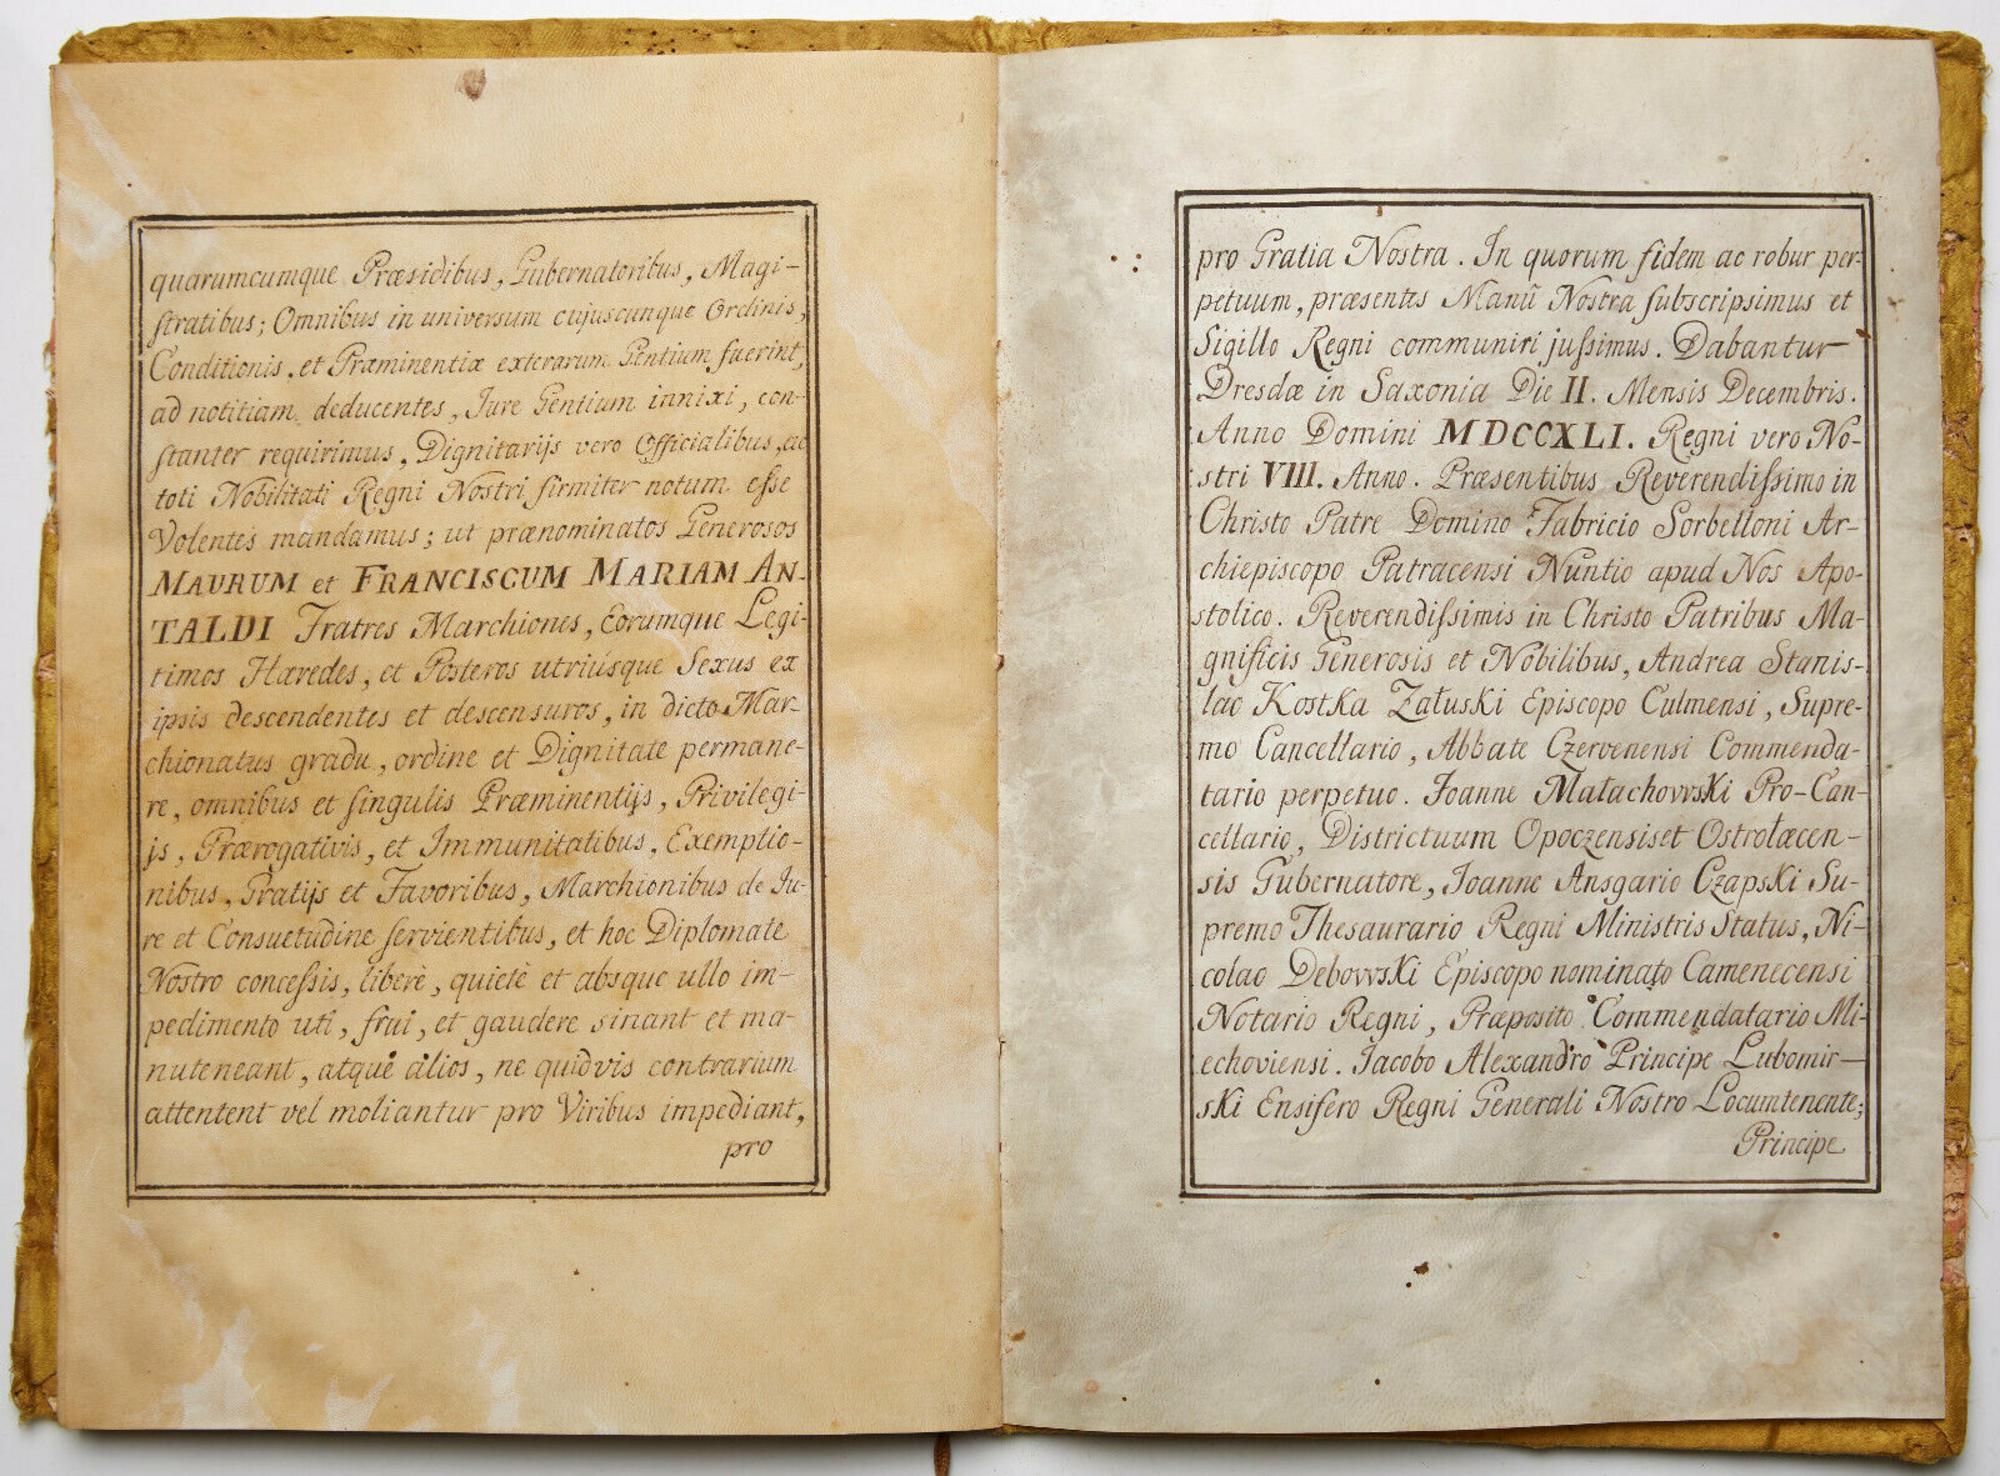 quarumcumque Præsidibus, Gubernatoribus, Magi-
stratibus; Omnibus in universum cujuscunque Ordinis,
Conditionis, et Præminentiæ exterarum Gentium fuerint,
ad notitiam deducentes, Jure Gentium innixi, con-
stanter requirimus, Dignitarijs vero Officialibus, ac
toti Nobilitati Regni Nostri firmiter notum esse
Volentes mandamus; ut prænominatos Generosos
MAURUM et FRANCISCUM MARIAM AN-
TALDI Fratres Marchiones, Eorumque Legi-
timos Hæredes, et Posteros utriúsque Sexus ex
ipsis descendentes et descensuros, in dicto Mar-
chionatus gradu, ordine et Dignitate permane-
re, omnibus et singulis Præminentijs, Privilegi-
js, Prærogativis, et Immunitatibus, Exemptio-
nibus, Gratijs et Favoribus, Marchionibus de Ju-
re et Consuetudine servientibus, et hoc Diplomate
Nostro concessis, liberè, quietè et absque ullo im-
pedimento uti, frui, et gaudere sinant et ma-
nuteneant, atque alios, ne quidvis contrarium
attentent vel moliantur pro Viribus impediant,
pro
pro Gratia Nostra. In quorum fidem ac robur per-
petuum, præsentes Manû Nostra subscripsimus et
Sigillo Regni communiri jussimus. Dabantur
Dresdæ in Saxonia Die II. Mensis Decembris.
Anno Domini MDCCXLI. Regni vero No-
stri VIII. Anno. Præsentibus Reverendissimo in
Christo Patre Domino Fabricio Sorbelloni Ar-
chiepiscopo Patracensi Nuntio apud Nos Apo-
stolico. Reverendissimis in Christo Patribus Ma-
gnificis Generosis et Nobilibus, Andrea Stanis-
lao Kostka Załuski Episcopo Culmensi, Supre-
mo Cancellario, Abbate Czervenensi Commenda-
tario perpetuo. Joanne Małachovvski Pro-Can-
cellario, Districtuum Opoczensis et Ostrolæcen-
sis Gubernatore, Joanne Ansgario Czapski Su-
premo Thesaurario Regni Ministris Status, Ni-
colao Debovvski Episcopo nominato Camenecensi
Notario Regni, Præposito Commendatario Mi-
echoviensi. Jacobo Alexandro Principe Lubomir-
ski Ensifero Regni Generali Nostro Locumtenente;
Principe